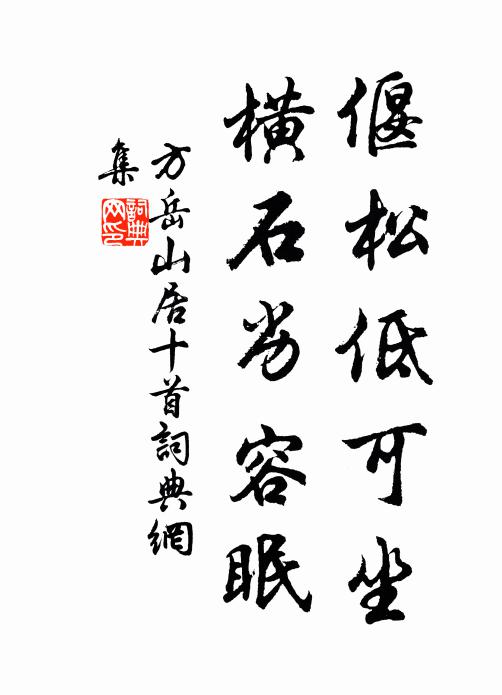 偃松低可坐
橫石劣容眠
方岳山居十首詞典網
集
詞典
网印